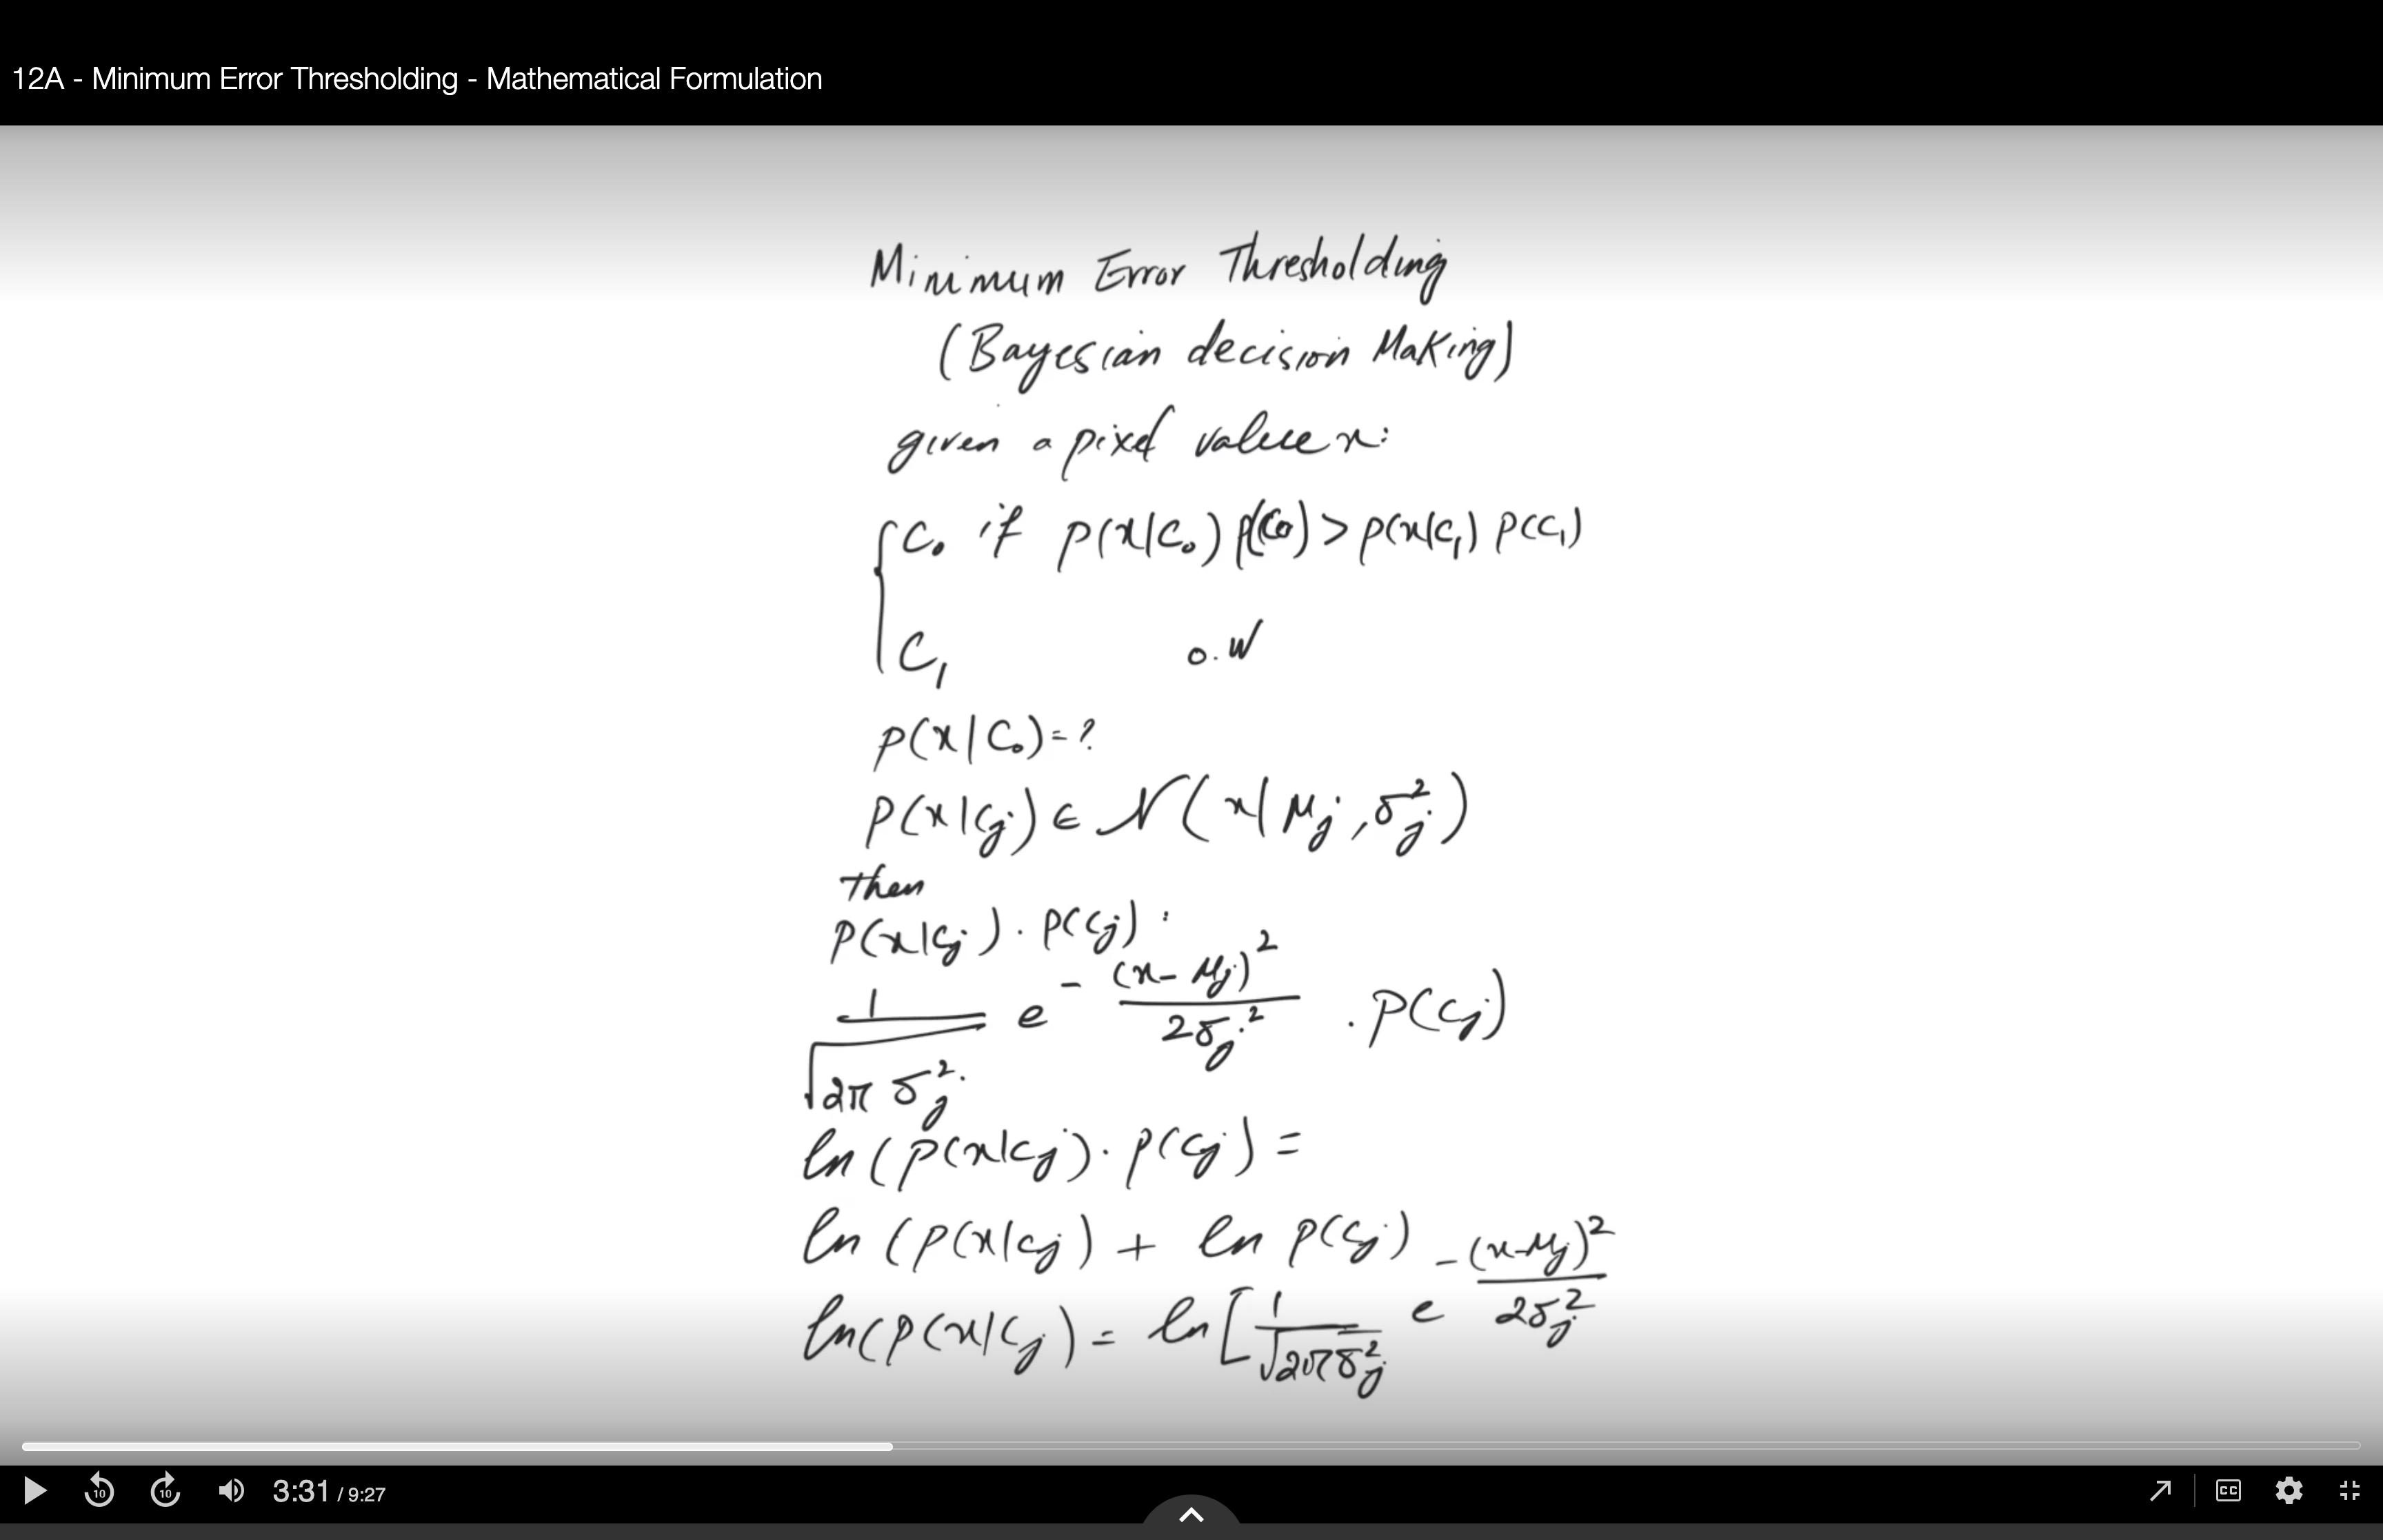 12A - Minimum Error Thresholding - Mathematical Formulation
Minimum Error Thresholding
(Bayesian decision Making)
given a pixel value x:
{ C₀ if p(x|C₀) p(C₀) > p(x|C₁) p(C₁)
C₁ o.w
p(x|C₀) = ?
p(x|Cj) ∈ 𝒩(x|μj, σj²)
Then
p(x|Cj) · p(Cj) :
1/√(2π σj²) e^(-(x-μj)²/(2σj²)) · p(Cj)
ln (p(x|Cj) · p(Cj) =
ln (p(x|Cj) + ln p(Cj)
ln(p(x|Cj) = ln [1/√(2πσj²) e^(-(x-μj)²/(2σj²))
10 10 3:31 / 9:27 CC